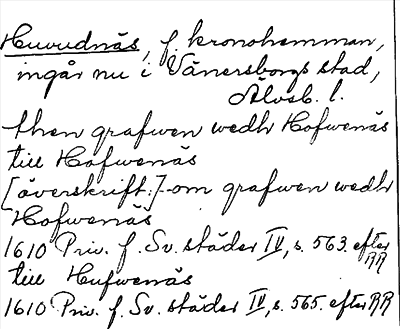 Huvudnäs, f. kronohemman,
ingår nu i Vänersborgs stad,
Älvsb. l.
then grafwen wedh Hofwenäs
till Hofwenäs
[överskrift:] om grafwen wedh
Hofwenäs
1610 Priv. f. Sv. städer IV, s. 563. efter RR
till Hufwenäs
1610 Priv. f. Sv. städer IV, s. 565. efter RR